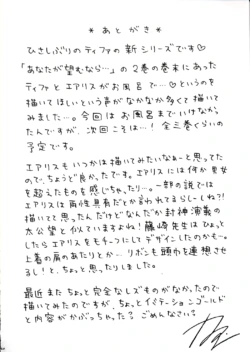 ＊あとがき＊
ひさしぶりのティファの新シリーズです♡
「あなたが望むなら…」の2巻の巻末にあった
ティファとエアリスがお風呂で……♡というのを
描いてほしいという声がなかなか多くて描いて
みました…。今回はお風呂までいけなかっ
たんですが、次回こそは…！全三巻くらいの
予定です。
エアリスもいつかは描いてみたいなぁーと思ってた
ので、ちょうど良かったです。エアリスには何か男女
を超えたものを感じちゃったり…。一部の説では
エアリスは両性具有だとか言われてるらしーしね?!
描いてて思ったんだけどなんだか封神演義の
太公望と似ていますよね!藤崎先生はひょっと
したらエアリスをモチーフにしてデザインしたのかも…。
上着の肩のあたりとか…リボンも頭巾を連想させ
るし!と、ちょっと思ったりしました。
最近またちょっと完全なレズものがなかったので
描いてみたのですが、ちょっとイミテーションゴールド
と内容がかぶっちゃった?ごめんなさい?